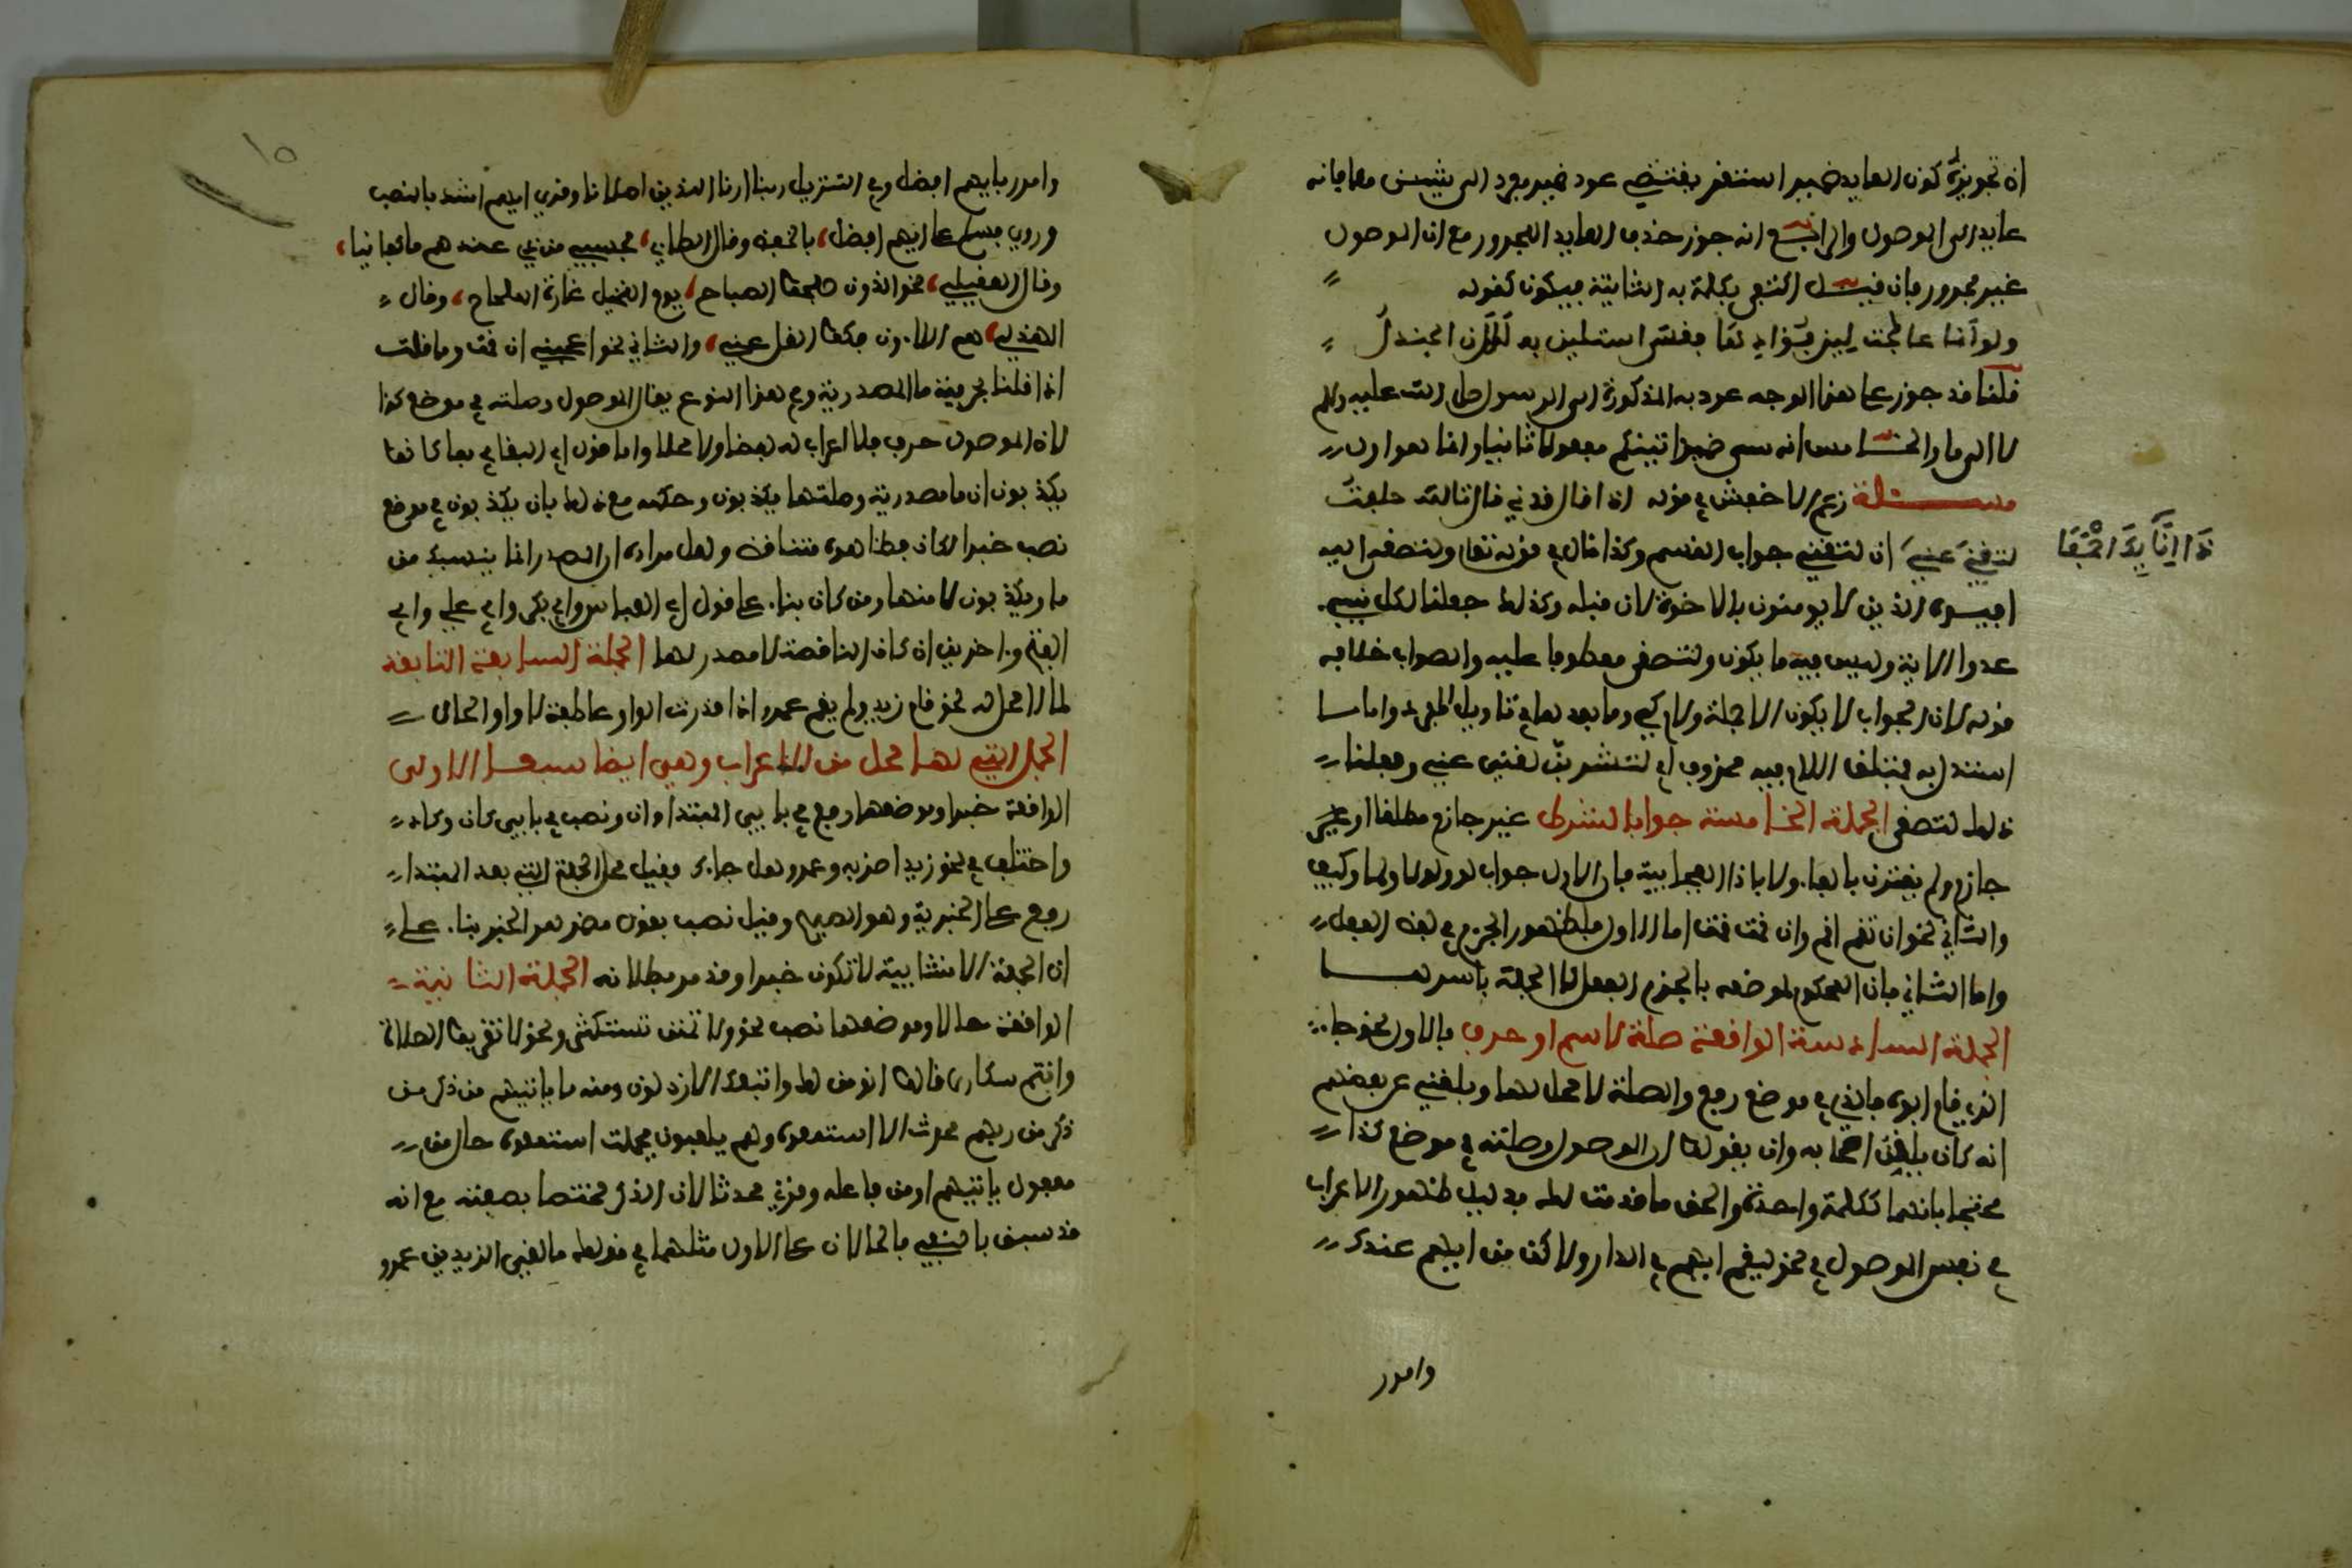 ان تجويزه كون العايد ضمير استقر يقتضي عود ضمير مفرد الى شيئين معا فانه
عايد الى الموصول والرابع انه جوز حذف العايد المجرور مع ان الموصول
غير مجرور فان قيل اكتفى بكلمة به الثانية فيكون كقوله
ولو أنما عالجت لين فؤادها فقسى استلين به للان الجندل
قلنا قد جوز على هذا الوجه عود به المذكورة الى الرسول صلى الله عليه وسلم
لا الى ما والخامس انه سمى ضمير اتيتكم مفعولا ثانيا وانما هو اول
مسئلة زعم الاخفش في قوله اذا قال قدني قال بالله حلفت
لتغني عني ان لتغني جواب القسم وكذا قال في قوله تعلى ولتصغى اليه
ذا إنائك اجمعا
افئدة الذين لا يومنون بالاخرة لان قبله وكذلك جعلنا لكل نبي
عدوا الاية وليس فيه ما يكون ولتصغى معطوفا عليه والصواب خلاف
قوله لان الجواب لا يكون الا جملة ولام كي وما بعدها في تاويل المفرد واما ما
استدل به فمتعلق اللام فيه محذوف اي لتشربن لتغني عني وفعلنا
ذلك لتصغى الجملة الخامسة جواب الشرط غير جازم مطلقا او غير
جازم ولم يقترن بالفاء ولا باذا الفجاءية فالاول جواب لو ولولا ولما وكيف
والثاني نحو ان تقم اقم وان قمت قمت اما الاول فلظهور الجزم في لفظ الفعل
واما الثاني فان المحكوم لموضعه بالجزم الفعل لا الجملة باسرها
الجملة السادسة الواقعة صلة لاسم او حرف فالاول نحو جاء
الذي قام ابوه فالذي في موضع رفع والصلة لا محل لها وبلغني عن بعضهم
انه كان يلقن اصحابه وان يقولوا ان الموصول وصلته في موضع كذا
محتجا بانهما ككلمة واحدة والحق ما قدمت لك بدليل ظهور الاعراب
في نفس الموصول في نحو ليقم ايهم في الدار ولاكرمن ايهم عندك
وامرر
وامرر بايهم افضل وفي التنزيل ربنا ارنا الذين اضلانا وقرئ ايهم اشد بالنصب
وروي فسلم على ايهم افضل بالخفض وقال الطاي فحسبي من ذي عندهم ما كفانيا
وقال العقيلي نحن الذون صبحوا الصباحا يوم النخيل غارة ملحاحا وقال
الهذلي هم اللاؤن فكوا الغل عني والثاني نحو اعجبني ان قمت وما قلت
اذا قلنا بحرفية ما المصدرية وفي هذا النوع يقال الموصول وصلته في موضع كذا
لان الموصول حرف فلا اعراب له لفظا ولا محلا واما قول ابي البقاء في بما كانوا
يكذبون ان ما مصدرية وصلتها يكذبون وحكمه مع ذلك بان يكذبون في موضع
نصب خبرا لكان فظاهره متناقض ولعل مراده ان المصدر انما ينسبك من
ما ويكذبون لا منها ومن كان بناء على قول ابي العباس وابي بكر وابي علي وابي
الفتح واخرين ان كان الناقصة لا مصدر لها الجملة السابعة التابعة
لما لا محل له نحو قام زيد ولم يقم عمرو اذا قدرت الواو عاطفة لا واو الحال
الجمل التي لها محل من الاعراب وهي ايضا سبع الاولى
الواقعة خبرا وموضعها رفع في بابي المبتدا وان ونصب في بابي كان وكاد
واختلف في نحو زيد اضربه وعمرو هل جاءك فقيل محل الجملة التي بعد المبتدا
رفع على الخبرية وهو الصحيح وقيل نصب بقول مضمر هو الخبر بناء على
ان الجملة الانشايية لا تكون خبرا وقد مر بطلانه الجملة الثانية
الواقعة حالا وموضعها نصب نحو ولا تمنن تستكثر ونحو لا تقربوا الصلاة
وانتم سكارى قالوا انومن لك واتبعك الارذلون ومنه ما ياتيهم من ذكر من
ذكر من ربهم محدث الا استمعوه وهم يلعبون فجملة استمعوه حال من
مفعول ياتيهم او من فاعله وقرئ محدثا لان الذكر مختص بصفته مع انه
قد سبق بالنفي فالحالان على الاول مثلهما في قولك ما لقي الزيدين عمرو